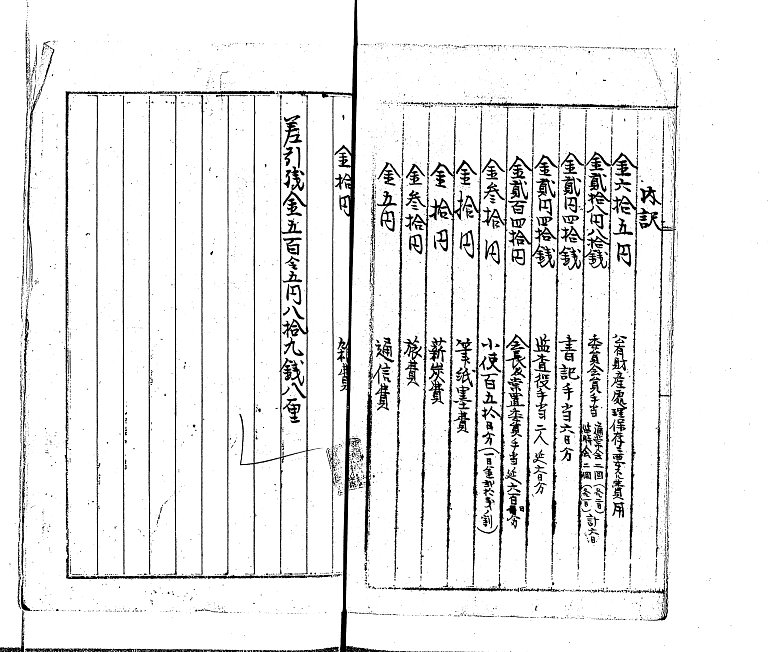 内訳
金六拾五円 公有財産處理保存ニ要スル費用
金貳拾八円八拾銭 委員会員手当 通常会二回 臨時会二回 計六日
金貳円四拾銭 書記手当六日分
金貳円四拾銭 監査役手当二人延六日分
金貳百四拾円 会長及常置委員手当延六百日分
金参拾円 小使百五拾日分(一日金貳拾銭ノ割)
金拾円 筆紙墨費
金拾円 薪炭費
金参拾円 旅費
金五円 通信費
金拾円 雑費
差引残金五百 五円八拾九銭八厘